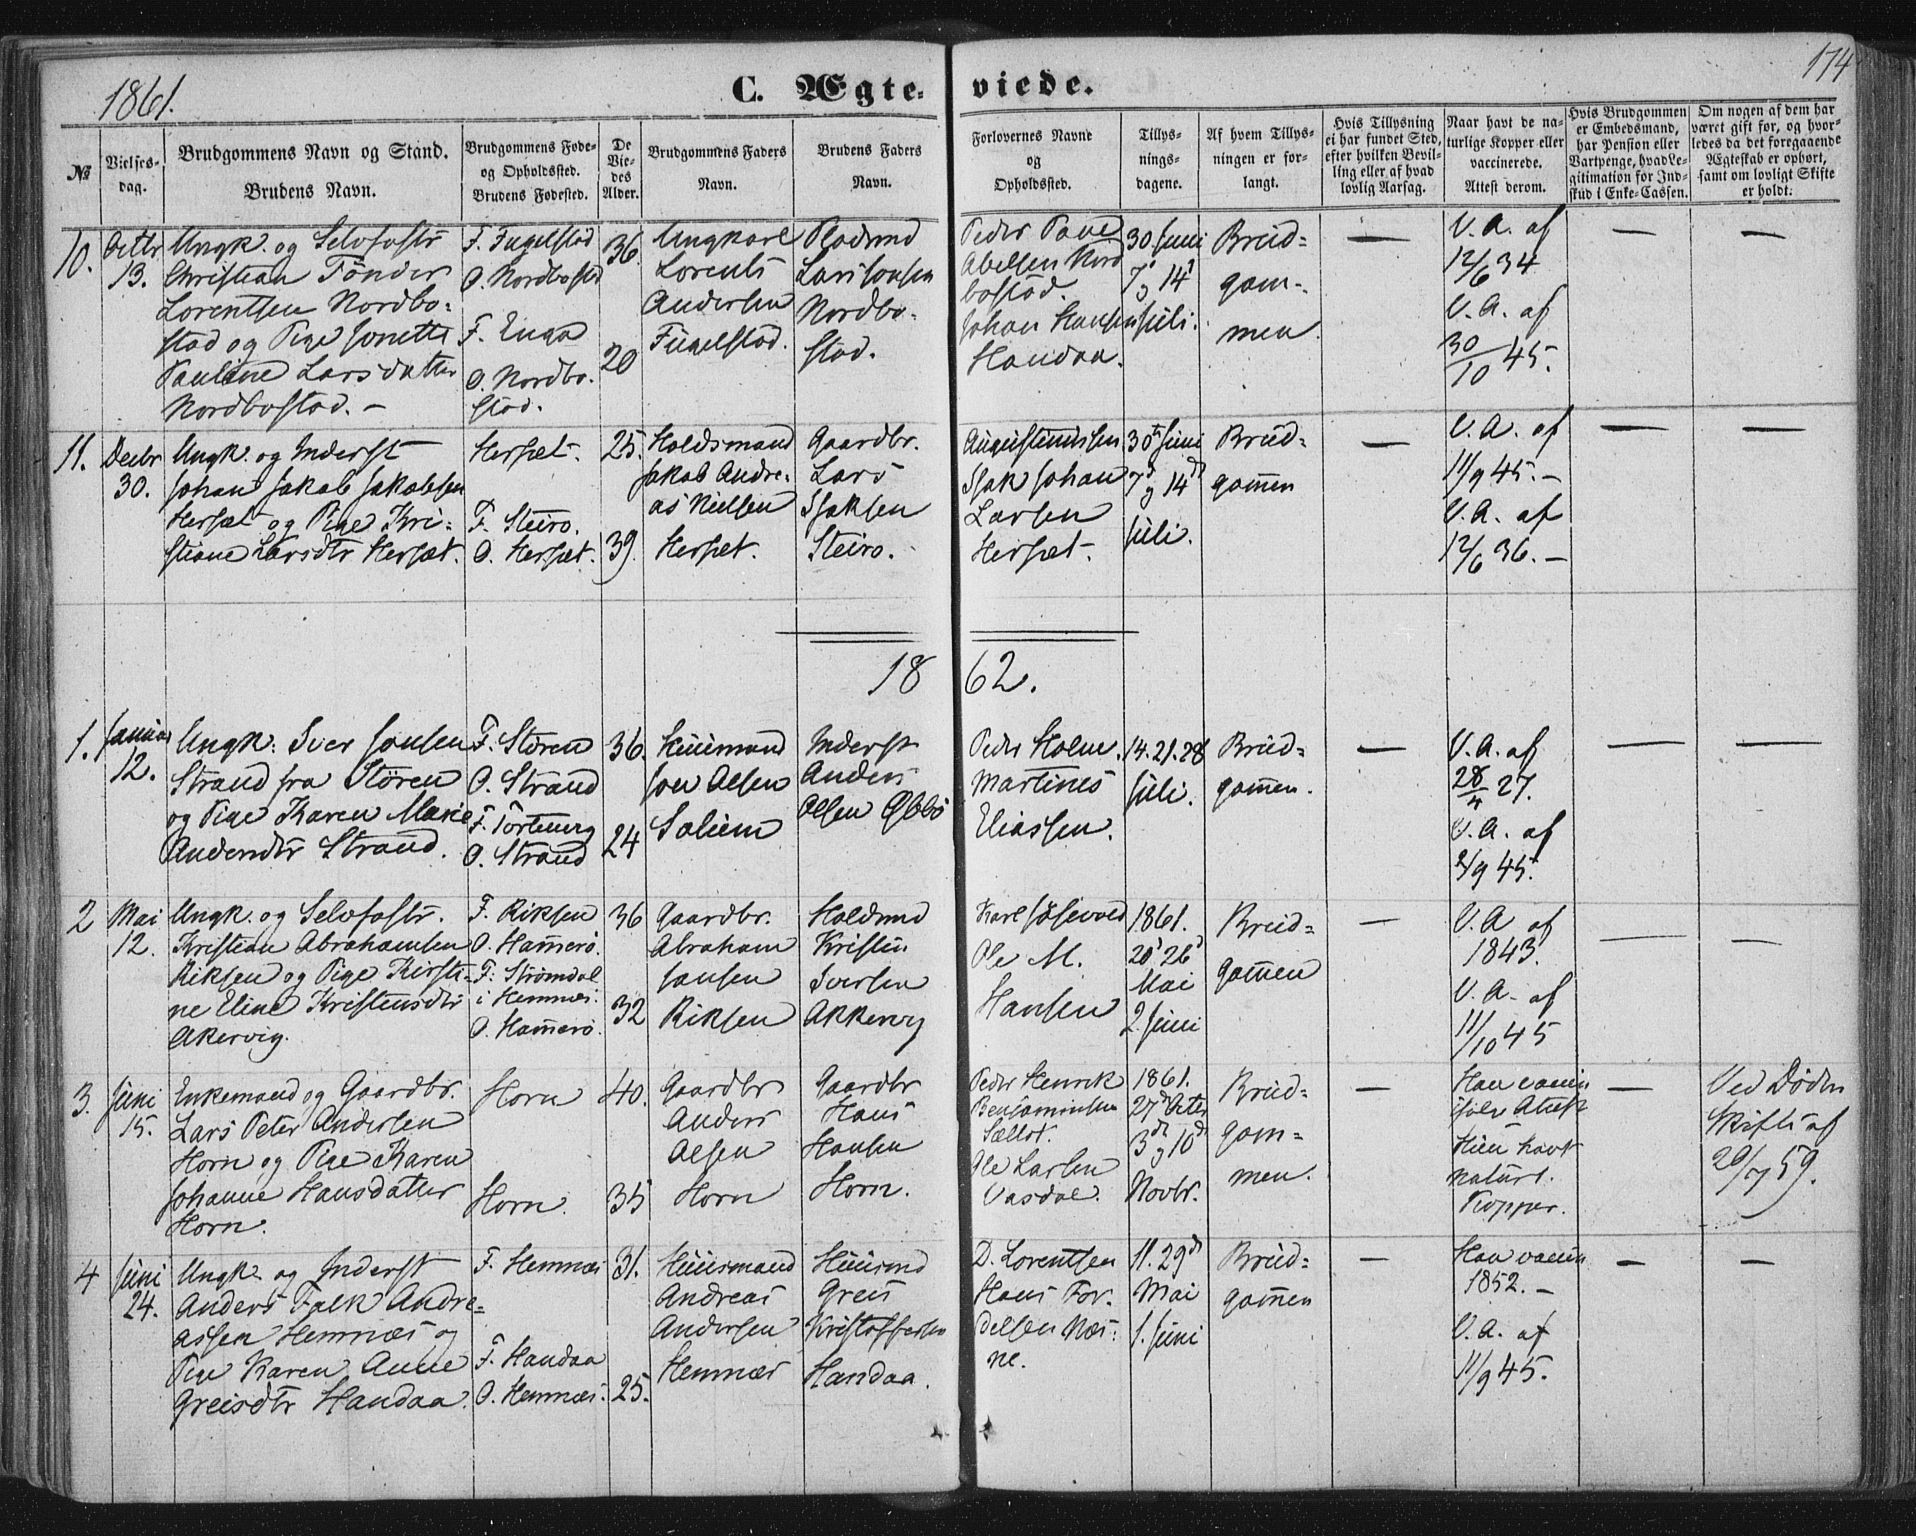 1861.
C. Ægte-
viede.
174
No
Vielses-
dag.
Brudgommens Navn og Stand.
Brudens Navn.
Brudgommens Føde-
og Opholdssted.
Brudens Fødested.
De
Vie-
des
Alder.
Brudgommens Faders
Navn.
Brudens Faders
Navn.
Forlovernes Navne
og
Opholdssted.
Tillys-
nings-
dagene.
Af hvem Tillys-
ningen er for-
langt.
Hvis Tillysning
ei har fundet Sted,
efter hvilken Bevil-
ling eller af hvad
lovlig Aarsag.
Naar havt de na-
turlige Kopper eller
vaccinerede.
Attest derom.
Hvis Brudgommen
er Embedsmand,
har Pension eller
Vartpenge, hvad Le-
gitimation for Ind-
skud i Enke-Cassen.
Om nogen af dem har
været gift før, og hvor-
ledes da det foregaaende
Ægteskab er ophørt,
samt om lovligt Skifte
er holdt.
10.
13.
Ungk. og Selvfostr
Christian Tønder
Lorentsen Nordbo-
stad og Pige Jonette
Pauline Larsdatter
Nordbostad. –
F. Fugelstad
O. Nordbostad
F. Enga
O. Nordbo-
stad.
36.
20
Ungkarl
Lorents
Andersen
Fugelstad.
Lars Jonsen
Nordbo-
stad.
Peder Pavel
Abelsen Nord
bostad.
Johan Hansen
Handaa.
30. Juni
7d 14d
Juli.
Brud-
gom-
men.
—
V. A. af
12/6 34
V. A. af
30/10 45.
—
—
11.
Decbr
30.
Ungk. og Inderst
Johan Jakob Jakobsen
Herset og Pige Kri-
stiane Larsdtr Herset.
Herset.
F. Steiro.
O. Herset.
25.
39.
Holdsmand
Jakob Andre-
as Nielsen
Herset.
Gaardbr.
Lars
Isaksen
Steiro.
Augustinussen
Isak Johan
Larsen
Herset.
30te Juni
7d og 14de
Juli.
Brud-
gommen
—
V. A. af
11/9 45. –
V. A. af
12/6 36. –
—
—
1862.
1.
Januar
12.
Ungk. Iver Jonsen
Strand fra Støren
og Pige Karen Marie
Andersdtr Strand.
F. Støren
O. Strand
F. Tortenvig
O. Strand
36.
24
Huusmand
Jon Olsen
Soliem
Inderst
Anders
Olsen
Peder Holm.
Martines
Eliassen.
14. 21. 28
Juli.
Brud-
gommen.
—
V. A. af
28/4 27.
V. A. af
2/9 45.
—
—
2
Mai
12.
Ungk. og Selvfostr.
Kristian Abrahamsen
Riksen og Pige Kirsti-
ne Eline Kristensdtr
Akervig.
F. Riksen
O. Hammerø.
F. Strømdal
i Hemnæs.
O. Hammerø.
36
32
Gaardbr.
Abraham
Jansen
Riksen
Holdsmd
Kristen
Iversen
Akkervig
Karl
Ole M.
Hansen
1861.
20d 26d
Mai
2. Juni
Brud-
gommen
—
V. A af
1843.
V. A. af
11/10 45
—
—
3.
Juni
15.
Enkemand og Gaardbr.
Lars Peter Andersen
Horn og Pige Karen
Johanne Hansdatter
Horn.
Horn
Horn.
40.
35
Gaardbr
Anders
Olsen
Horn
Gaardbr
Hans
Hansen
Horn.
Peder Henrik
Benjaminsen
Ole Larsen
Vasdal.
1861.
27de Octbr
3de og 10de
Novbr.
Brud-
gom-
men.
—
Han vaccin
Hun havt
naturl.
Kopper.
—
Ved Døden
Skifte af
29/7 59.
4
Juni
24.
Ungk. og Inderst
Anders Falk Andre-
assen Hemnæs og
Pige Karen Anne
Greisdtr Handaa.
F. Hemnæs
F. Handaa
O. Hemnæs.
31.
25.
Huusmand
Andreas
Andersen
Hemnæs
Huusmd
Greis
Kristoffersen
Handaa.
D. Lorentsen
Hans For-
delsen Næs-
ne.
11. 29de
Mai
1. Juni
Brud-
gommen
—
Han vaccin
1852. –
V. A. af
11/9 45.
—
—